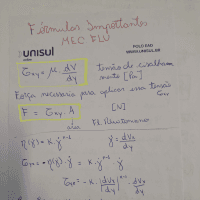 Fórmulas Importantes
MEC FLU
unisul
POLO EAD
τxy = μ. dV/dy
tensão de cisalhamento [Pa]
Força necessária para aplicar essa tensão τxy
F = τxy. A
[N]
área
Fl. Newtoniano
η(γ̇) = K. γ̇ⁿ⁻¹
γ̇ = dVx/dy
τxy = η(γ̇). γ̇ = K. γ̇ⁿ⁻¹ γ̇
τyx = -K. |dVx/dy|ⁿ⁻¹ dVx/dy